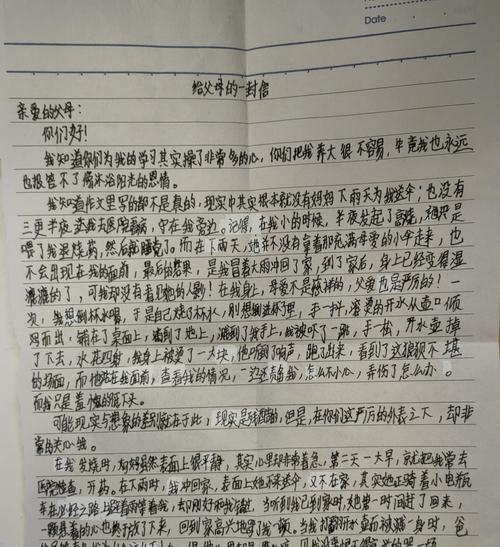 Date
给父母的一封信
亲爱的父母:
你们好!
我知道你们为我的学习其实操了非常多的心,你们把我养大很不容易,毕竟我也永远
也报答不了你沐浴阳光的恩情。
我知道作文里写的都不是真的,现实中其实根本就没有妈妈下雨天为我送伞;也没有
三更半夜送我去医院看病,守在我旁边。记得,在我小的时候,半夜发起了高烧,妈只是
喂了我退烧药,然后就睡了。而在下雨天,她并不没有拿着那充满母爱的小伞走来,也
不会出现在我的面前,最后的结果,是我冒着大雨冲回了家,到了家后,身上已经变得湿
漉漉的了,可我却没有看见她的人影!在我身上,母爱不是慈祥的,父爱也是严厉的!一
次,我想倒杯水喝,于是自己烧了杯水,刚想倒进杯子里,手一抖,滚烫的开水从壶口倾
泻而出,铺在了桌面上,溅到了地上,溅到了我手上,我被吓了一跳,手一松,开水壶掉
了下去,水花四射,我身上被烫了一大块,他听到响声,跑了出来,看到了这狼狈不堪
的场面,而他站在我面前,查看我的情况,一边还责备我,怎么不小心,弄伤了怎么办。
而我只是羞愧的低下头。
可能现实与想象的差别就在于此,现实是残酷的,但是,在你们这严厉的外表之下,却非
常的关心我。
在我发烧时,妈妈虽然表面上很平静,其实心里却非常着急,第二天一大早,就把我带去
医院检查,开药。在下雨时,我冲回家,表面上她不来送伞,又不在家,其实她正骑着小电瓶
车在必经之路上 着雨等着我,却刚好和我错过,当听到我已到家时,她第一时间赶了回来,
一颗悬着的心也终于放了下来,回到家高兴地 了我一顿。当我打翻开水壶而被 一身时,爸